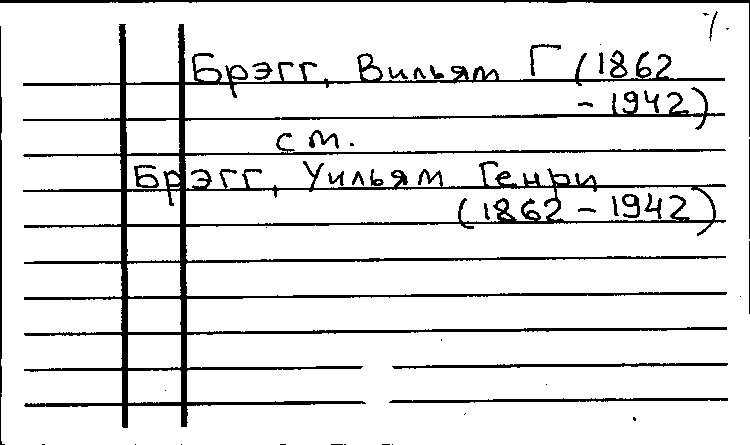 Брэгг, Вильям Г (1862
- 1942)
см.
Брэгг, Уильям Генри
(1862 - 1942)